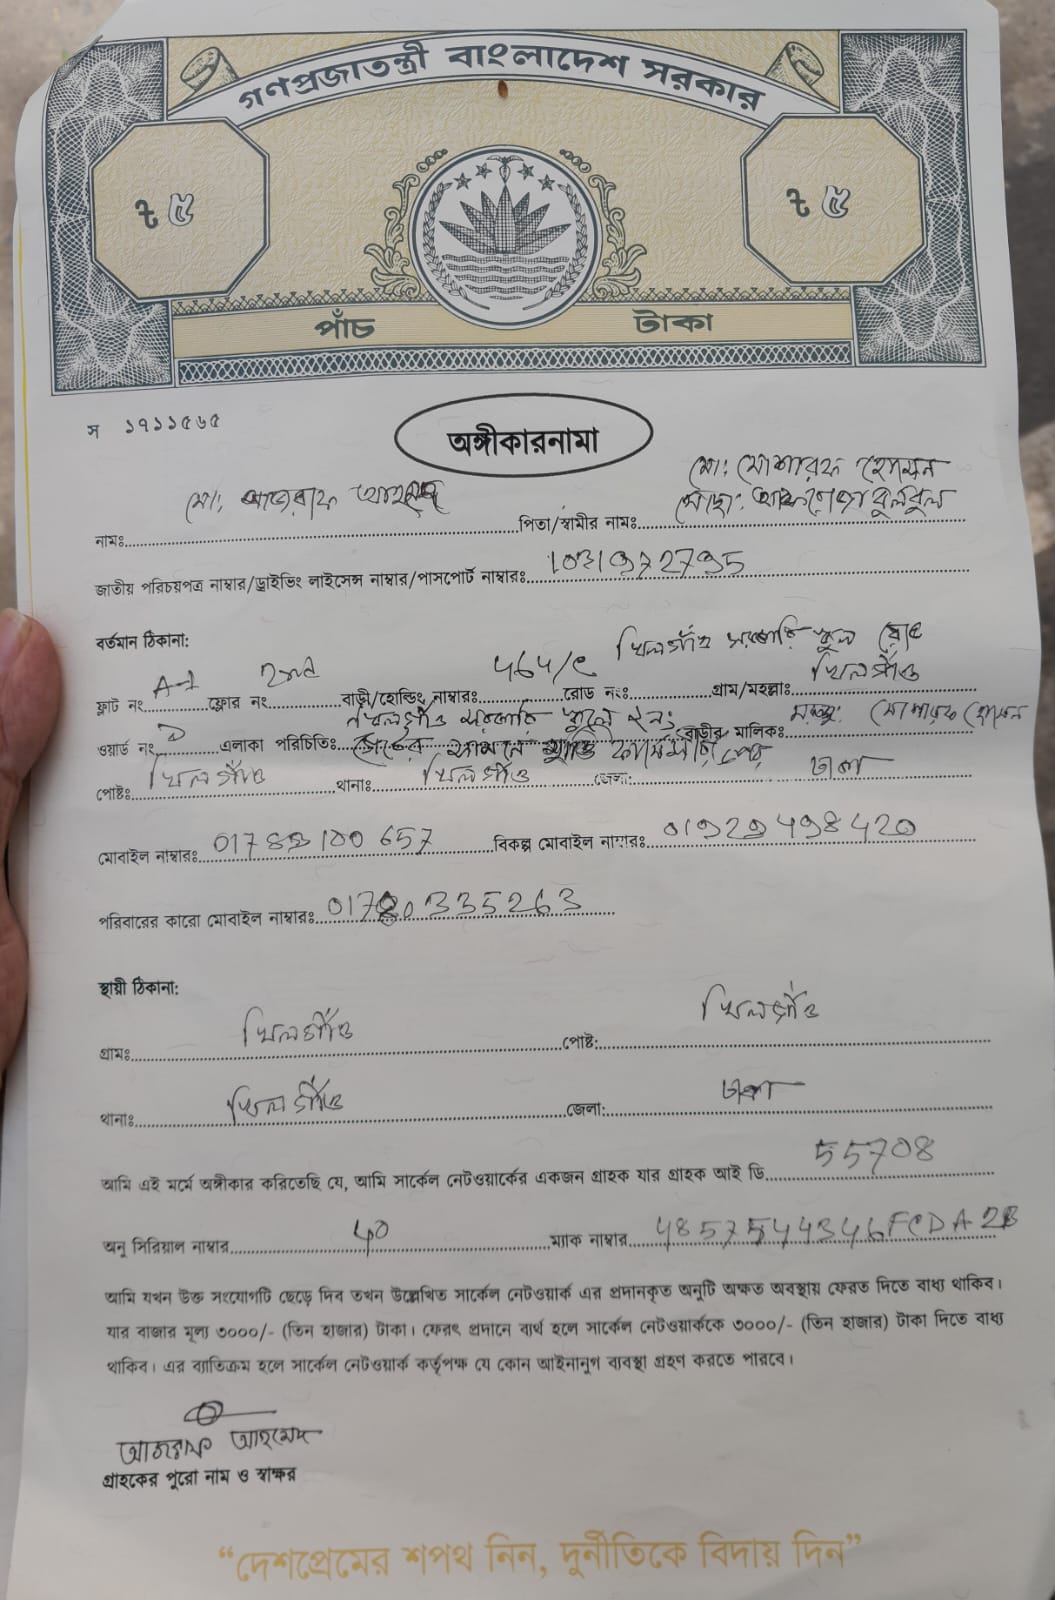 গণপ্রজাতন্ত্রী বাংলাদেশ সরকার
৳ ৫ ৳ ৫
পাঁচ টাকা
স ১৭১১৫৬৫
অঙ্গীকারনামা
মো: মোশারফ হোসেন
মো: আহমেদ মোছা: বুলবুল
নামঃ পিতা/স্বামীর নামঃ
জাতীয় পরিচয়পত্র নাম্বার/ড্রাইভিং লাইসেন্স নাম্বার/পাসপোর্ট নাম্বারঃ
বর্তমান ঠিকানা:
খিলগাঁও সরকারি স্কুল রোড
ফ্লাট নং A-1 ফ্লোর নং 2nd বাড়ী/হোল্ডিং নাম্বারঃ 464/c রোড নংঃ গ্রাম/মহল্লাঃ খিলগাঁও
খিলগাঁও সরকারি স্কুলে ২নং
ওয়ার্ড নং ১ এলাকা পরিচিতিঃ গেটের সামনে বাড়ীর মালিকঃ মোশারফ হোসেন
পোষ্টঃ খিলগাঁও থানাঃ খিলগাঁও জেলা: ঢাকা
মোবাইল নাম্বারঃ বিকল্প মোবাইল নাম্বারঃ
পরিবারের কারো মোবাইল নাম্বারঃ
স্থায়ী ঠিকানা:
গ্রামঃ খিলগাঁও পোষ্ট: খিলগাঁও
থানাঃ খিলগাঁও জেলা: ঢাকা
আমি এই মর্মে অঙ্গীকার করিতেছি যে, আমি সার্কেল নেটওয়ার্কের একজন গ্রাহক যার গ্রাহক আই ডি 55708
অনু সিরিয়াল নাম্বার 40 ম্যাক নাম্বার
আমি যখন উক্ত সংযোগটি ছেড়ে দিব তখন উল্লেখিত সার্কেল নেটওয়ার্ক এর প্রদানকৃত অনুটি অক্ষত অবস্থায় ফেরত দিতে বাধ্য থাকিব।
যার বাজার মূল্য ৩০০০/- (তিন হাজার) টাকা। ফেরৎ প্রদানে ব্যর্থ হলে সার্কেল নেটওয়ার্ককে ৩০০০/- (তিন হাজার) টাকা দিতে বাধ্য
থাকিব। এর ব্যতিক্রম হলে সার্কেল নেটওয়ার্ক কর্তৃপক্ষ যে কোন আইনানুগ ব্যবস্থা গ্রহণ করতে পারবে।
আজরাফ আহমেদ
গ্রাহকের পুরো নাম ও স্বাক্ষর
“দেশপ্রেমের শপথ নিন, দুর্নীতিকে বিদায় দিন”